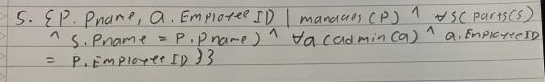 5. {P.Pname, a.EmployeeID | manages(P) ^ ∀s(parts(s)
^ s.Pname = P.Pname) ^ ∀a(admin(a) ^ a.EmployeeID
= P.EmployeeID)}